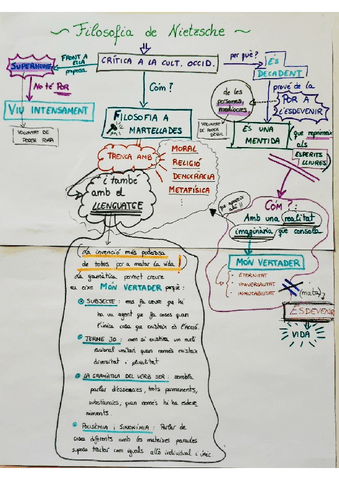 ~ Filosofia de Nietzsche ~
SUPERHOME
FRONT A
ELLA
proposa
CRÍTICA A LA CULT. OCCID.
per què?
ÉS
DECADENT
NO TÉ POR
Com?
VIU INTENSAMENT
VOLUNTAT DE
PODER PURA
FILOSOFIA A
MARTELLADES
de les
persones
mediocres
prové de la
POR A
L'ESDEVENIR
VOLUNTAT DE PODER
DÈBIL
ÉS UNA
MENTIDA
que reprimeix
als
ESPERITS
LLIURES
TRENCA AMB
MORAL
RELIGIÓ
DEMOCRÀCIA
METAFÍSICA
i també
amb el
LLENGUATGE
COM?:
Amb una realitat
imaginària que consola
MÓN VERTADER
- ETERNITAT
- UNIVERSALITAT
- IMMUTABILITAT
(mata)
ESDEVENIR
VIDA
La invenció més poderosa
de totes per a matar la vida
La gramàtica permet creure
en eixe MÓN VERTADER perquè:
SUBJECTE: ens fa creure que hi
ha un agent que fa coses quan
l'única cosa que existeix és l'acció.
TERME JO: com si existira un nucli
racional unitari quan només existeix
diversitat i pluralitat
LA GRAMÀTICA DEL VERB SER: sembla
parlar d'essències, trets permanents,
substàncies, quan només hi ha esdeve
niments.
POLISÈMIA i SINONÍMIA: Parlar de
coses diferents amb les mateixes paraules
suposa tractar com iguals allò individual i únic.